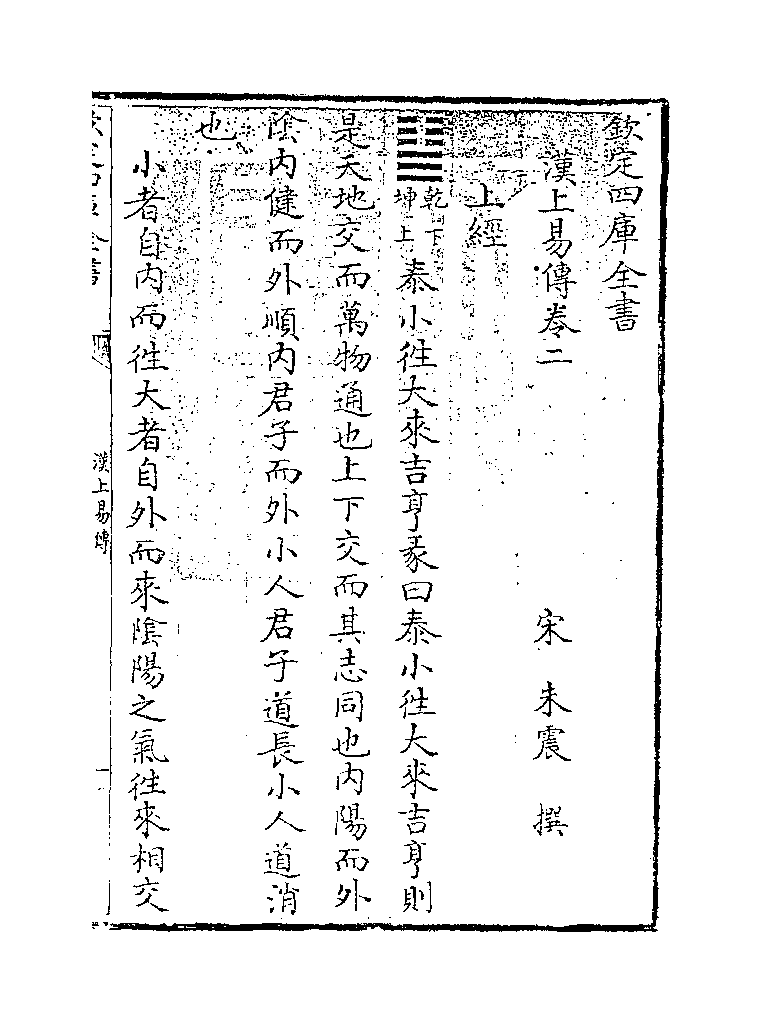 欽定四庫全書
漢上易傳卷二
宋 朱震 撰
上經
䷊乾下坤上泰小徃大來吉亨彖曰泰小徃大來吉亨則
是天地交而萬物通也上下交而其志同也内陽而外
隂内健而外順内君子而外小人君子道長小人道消
也
小者自内而徃大者自外而來隂陽之氣徃來相交
漢上易傳
一